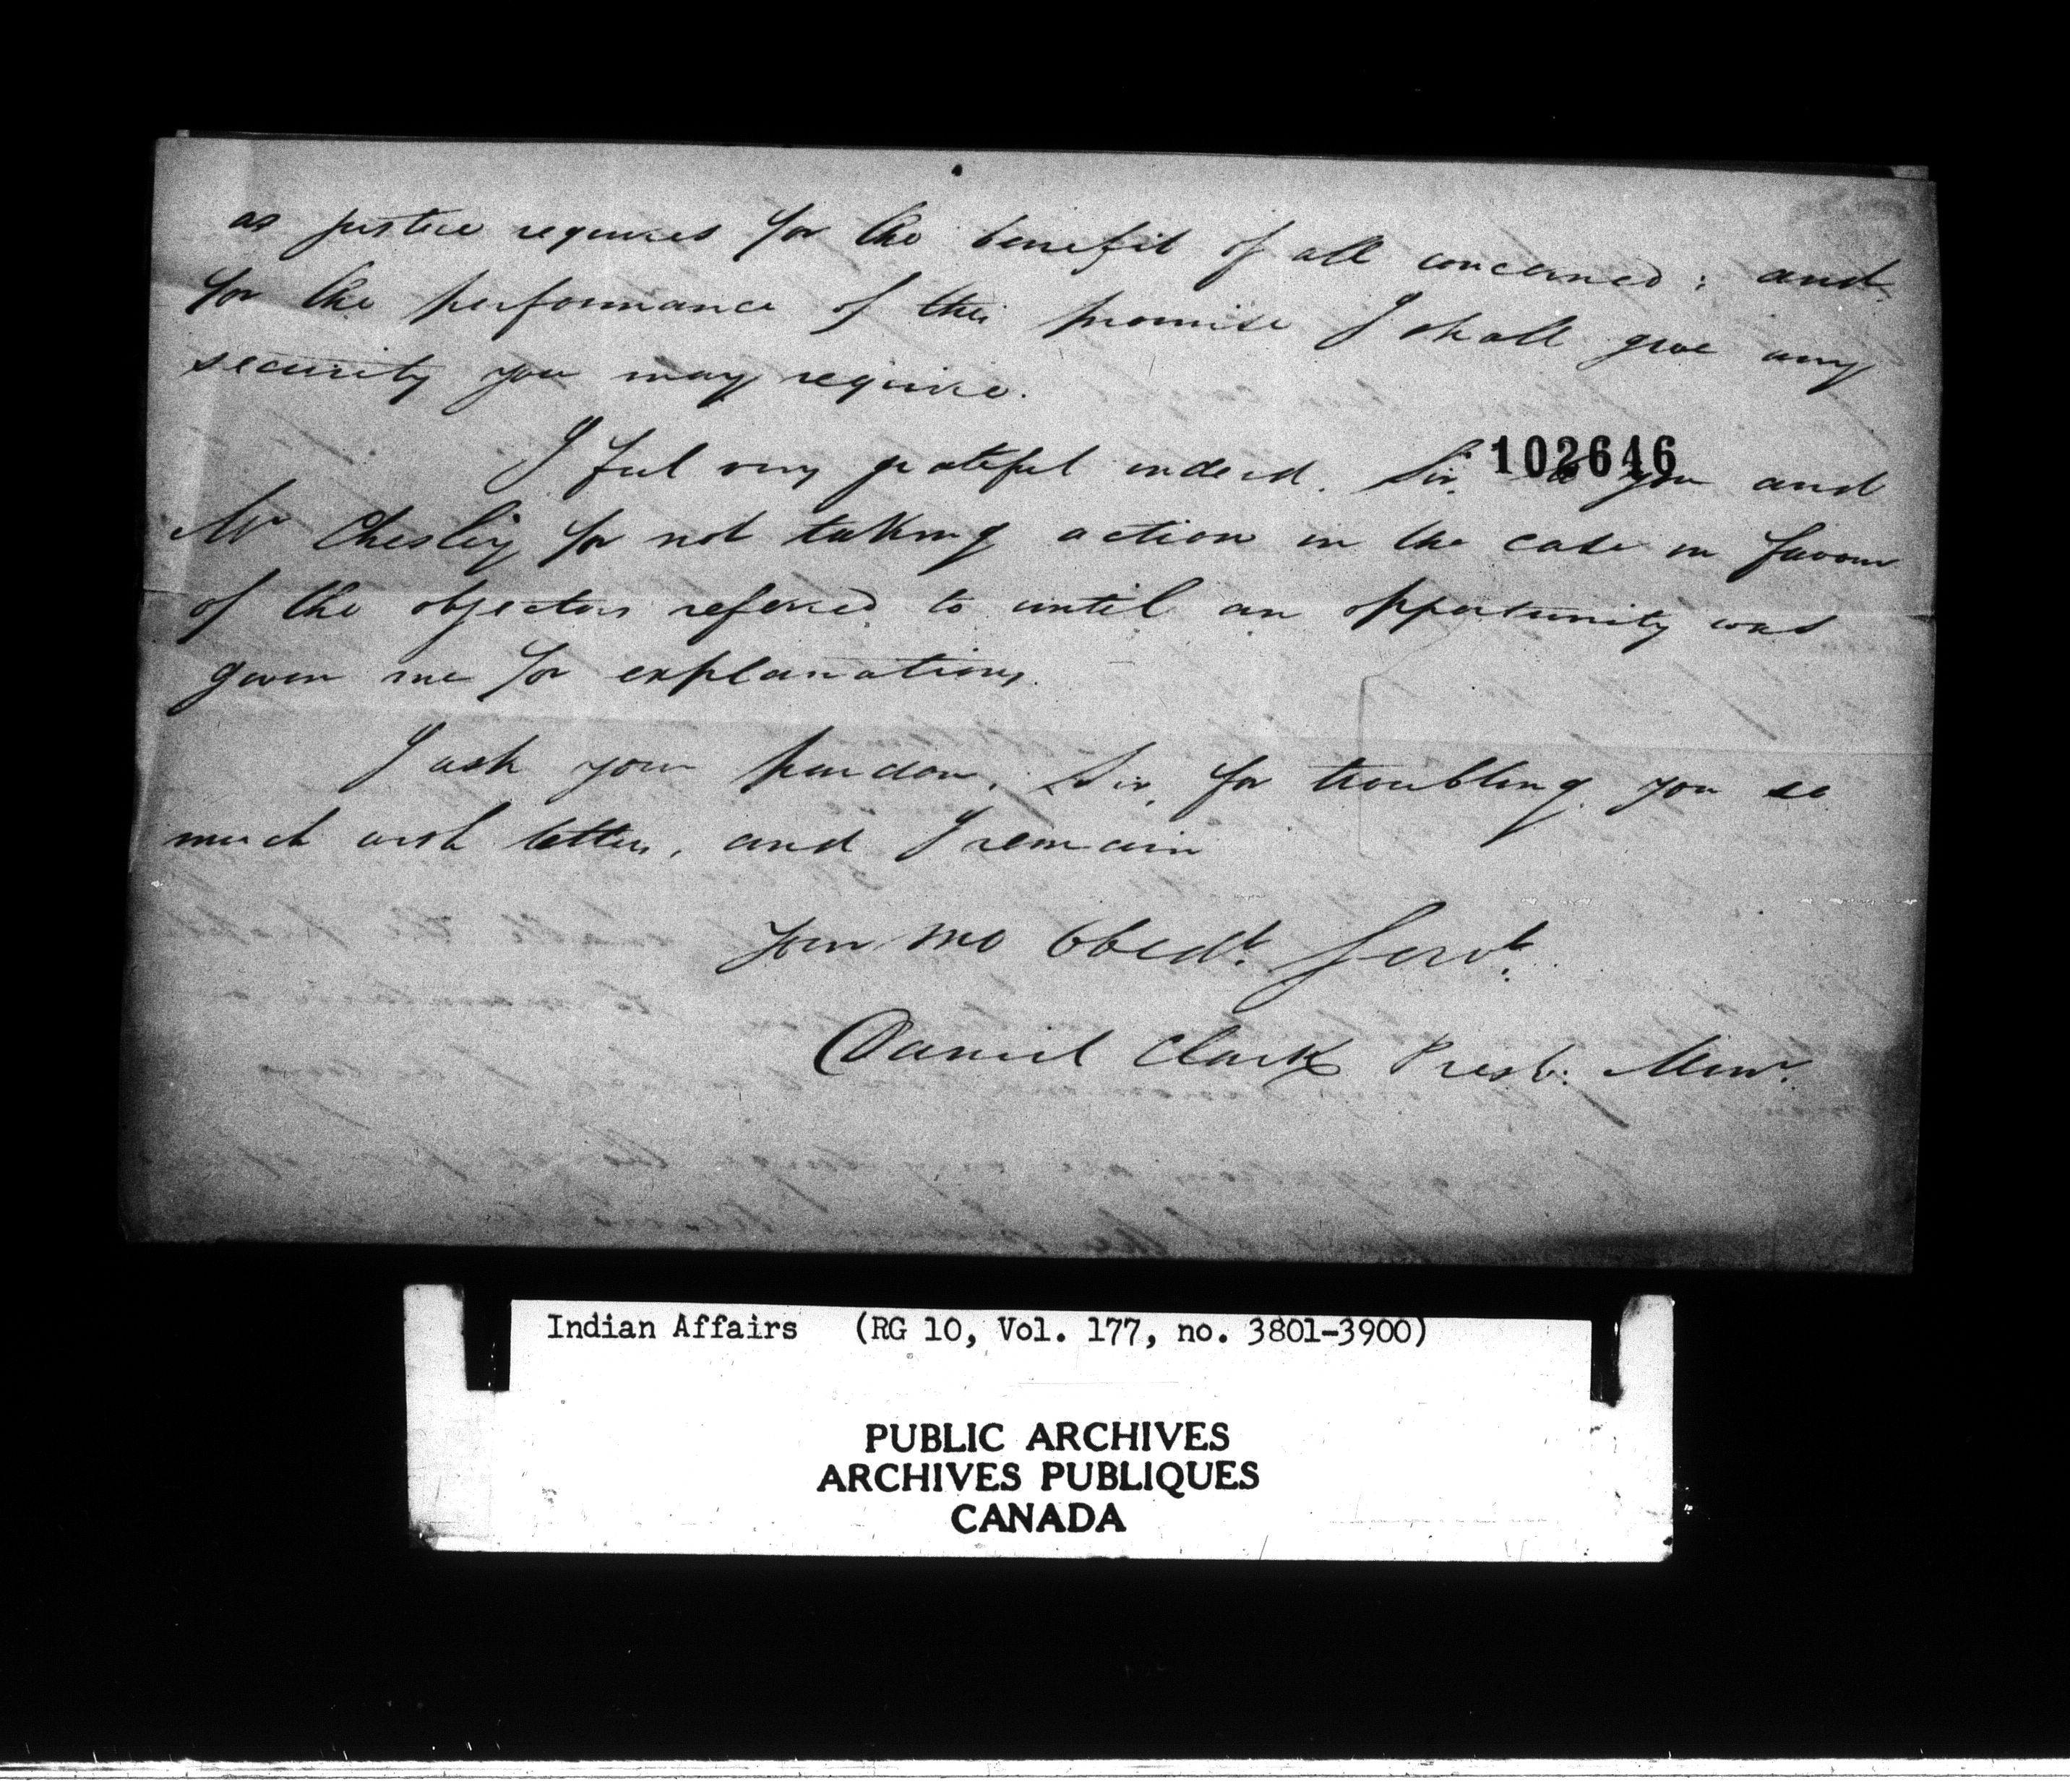 as justice requires for the benefit of all concerned; and
for the performance of this promise I shall give any
security you may require.
I feel very grateful indeed, Sir, to you and
102646
Mr Chesley for not taking action in the case in favour
of the objectors referred to until an opportunity was
given me for explanations.
I ask your pardon, Sir, for troubling you so
much with letters, and I remain
Your mo Obedt. Servt.
Daniel Clark Presb: Minr.
Indian Affairs (RG 10, Vol. 177, no. 3801-3900)
PUBLIC ARCHIVES
ARCHIVES PUBLIQUES
CANADA